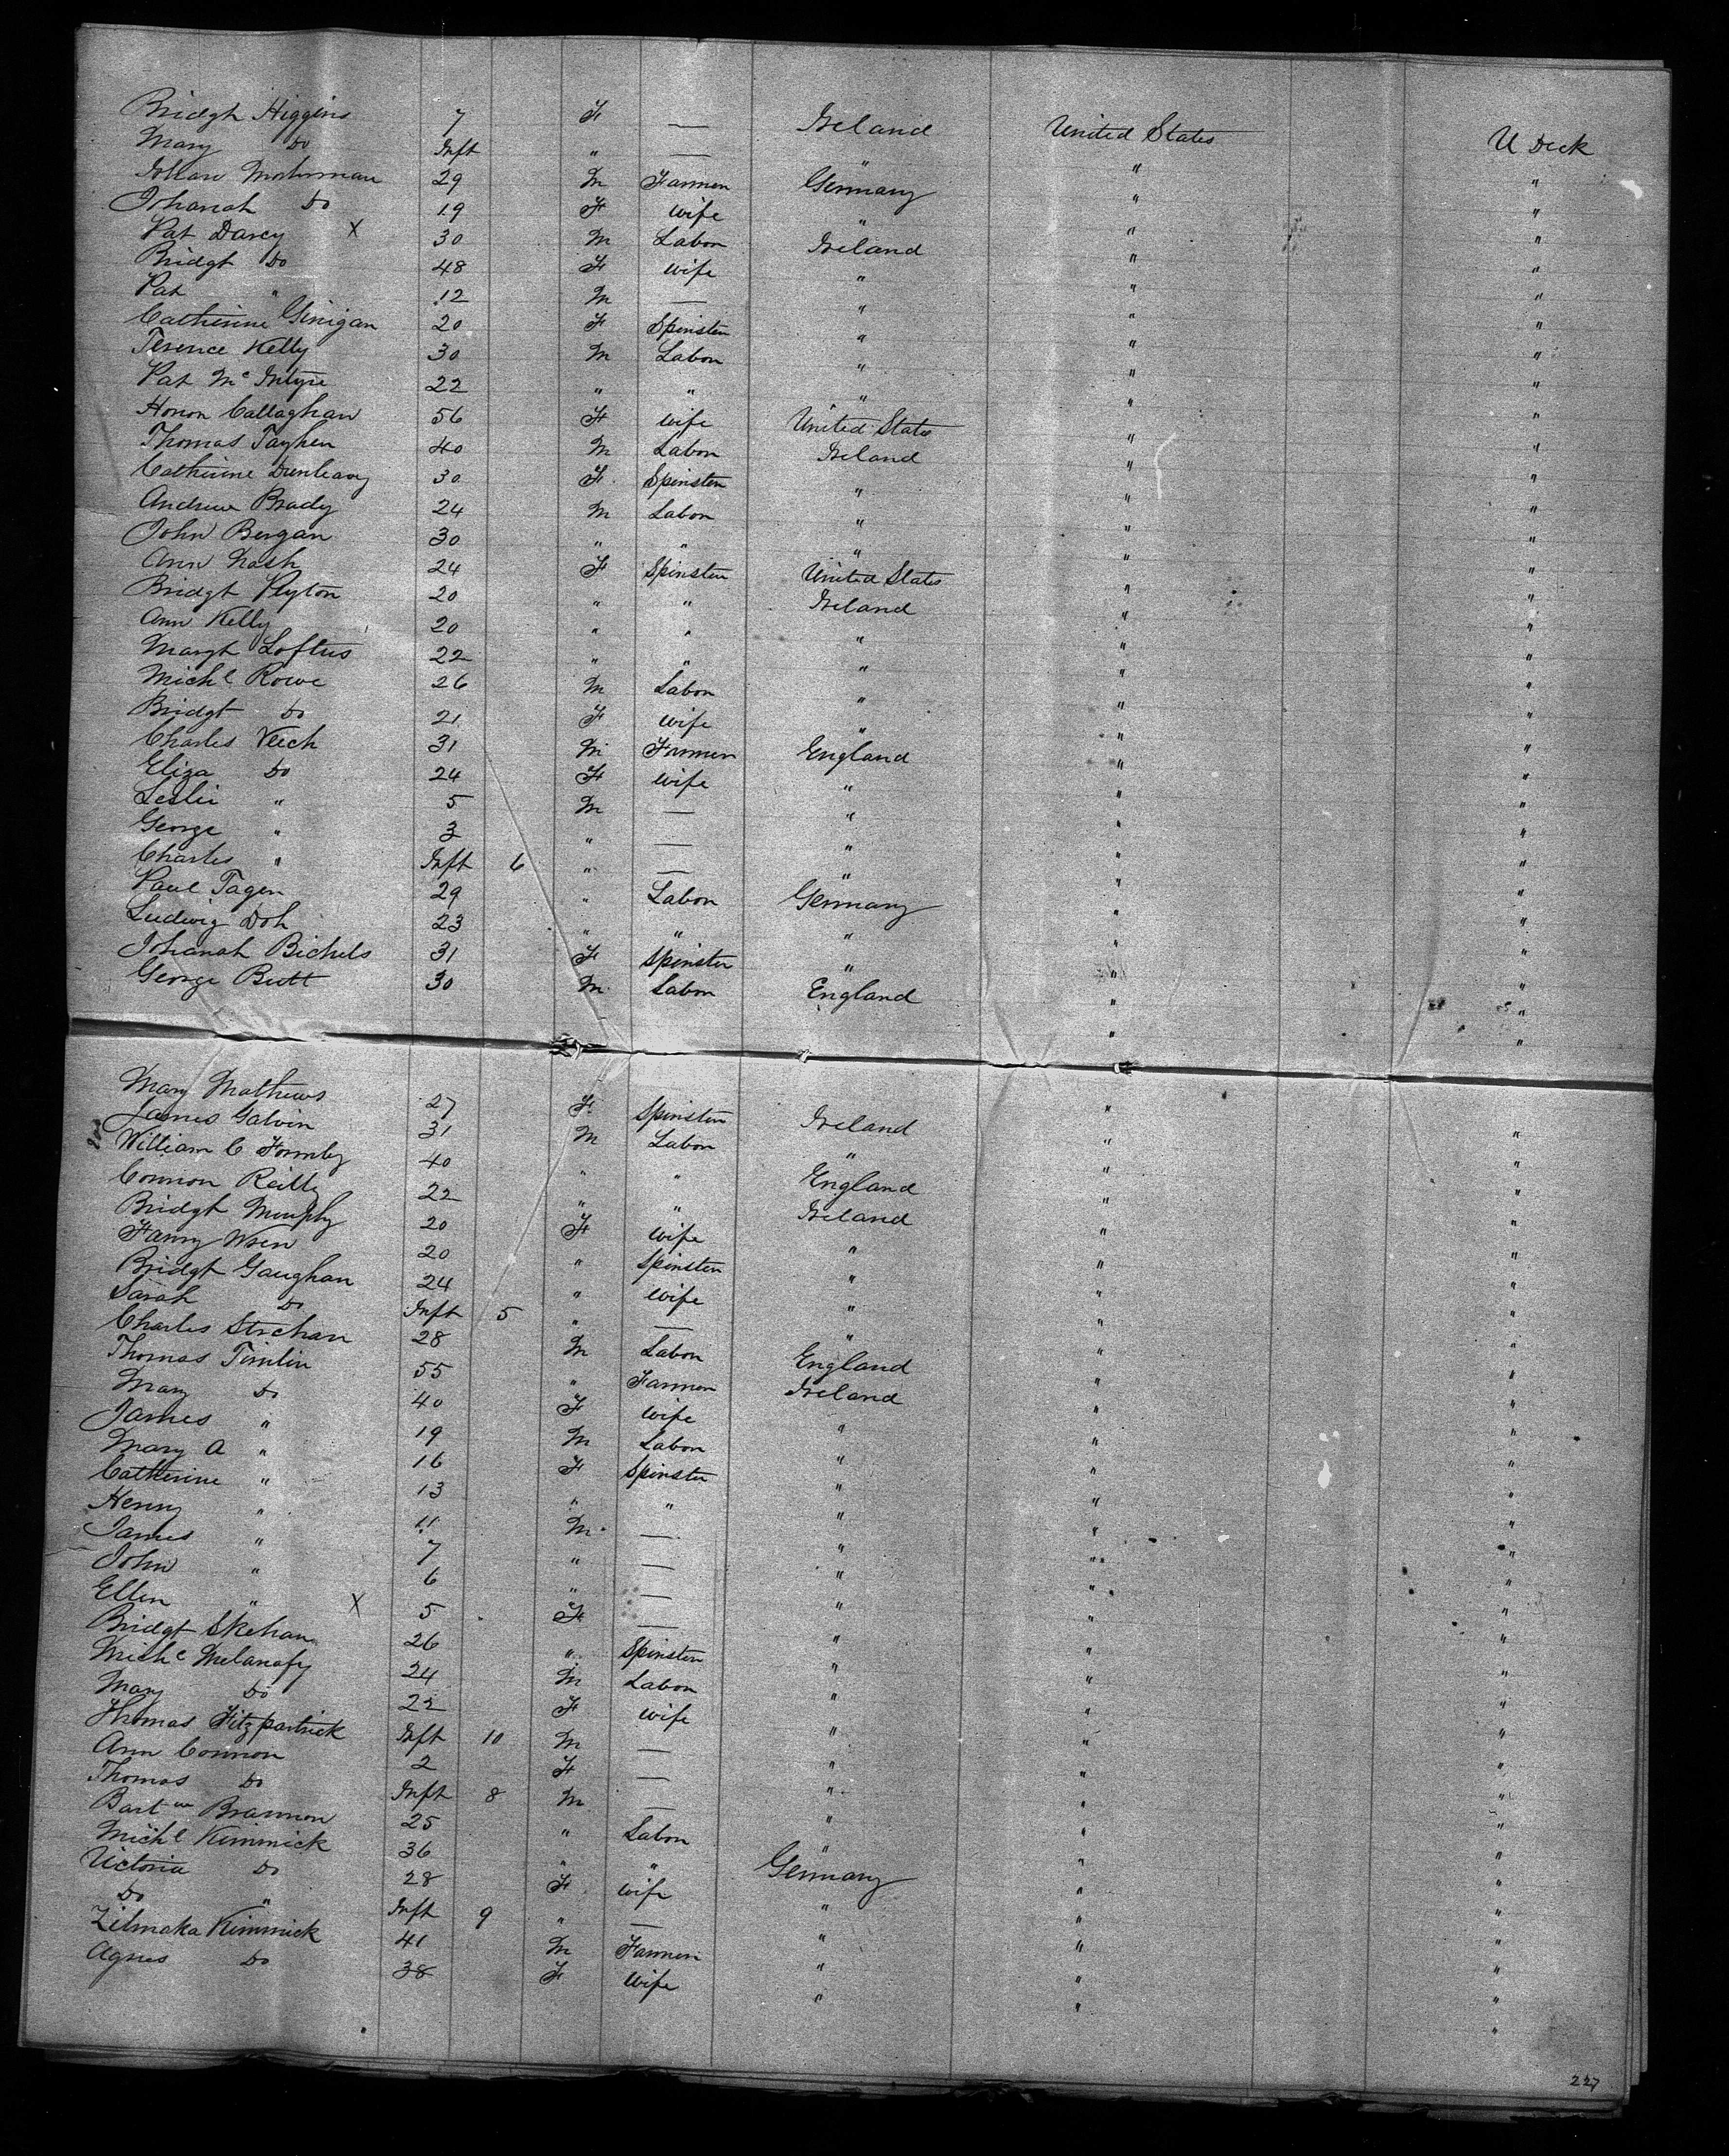 Bridgt Higgins 7 F — Ireland United States U Deck
Mary Do Inft " — " " "
Johan 29 M Farmer Germany " "
Johanah Do 19 F Wife " " "
Pat Darcy X 30 M Labor Ireland " "
Bridgt Do 48 F Wife " " "
Pat " 12 M — " " "
Catherine Ginigan 20 F Spinster " " "
Terence Kelly 30 M Labor " " "
Pat Mc Intyre 22 " " " " "
Honor Callaghan 56 F Wife United States " "
Thomas Tayhen 40 M Labor Ireland " "
Catherine Dunleavy 30 F Spinster " " "
Andrew Brady 24 M Labor " " "
John Bergan 30 " " " " "
Ann Nash 24 F Spinster United States " "
Bridgt Peyton 20 " " Ireland " "
Ann Kelly 20 " " " " "
Margt Loftus 22 " " " " "
Michl Rowe 26 M Labor " " "
Bridgt Do 21 F Wife " " "
Charles Veich 31 M Farmer England " "
Eliza Do 24 F Wife " " "
Leslie " 5 M — " " "
George " 3 " — " " "
Charles " Inft 6 " — " " "
Paul Tagen 29 " Labor Germany " "
Ludwig Doh 23 " " " " "
Johanah Bichels 31 F Spinster " " "
George Butt 30 M Labor England " "
Mary Mathews 27 F Spinster Ireland " "
James Galvin 31 M Labor " " "
William C Formby 40 " " England " "
Connor Reilly 22 " " Ireland " "
Bridgt Murphy 20 F Wife " " "
Fanny Wren 20 " Spinster " " "
Bridgt Gaughan 24 " Wife " " "
Sarah Do Inft 5 " — " " "
Charles Strehan 28 M Labor England " "
Thomas Timlin 55 " Farmer Ireland " "
Mary Do 40 F Wife " " "
James " 19 M Labor " " "
Mary A " 16 F Spinster " " "
Catherine " 13 " " " " "
Henry " 11 M — " " "
James " 7 " — " " "
John " 6 " — " " "
Ellen " X 5 F — " " "
Bridgt Skehan 26 " Spinster " " "
Michl Melanafy 24 M Labor " " "
Mary Do 22 F Wife " " "
Thomas Fitzpatrick Inft 10 M — " " "
Ann Connor 2 F — " " "
Thomas Do Inft 8 M — " " "
Bartw Brannon 25 " Labor " " "
Michl Kimmick 36 " " Germany " "
Victoria Do 28 F Wife " " "
Do " Inft 9 " — " " "
Zilmaka Kimmick 41 M Farmer " " "
Agnes Do 38 F Wife " " "
227